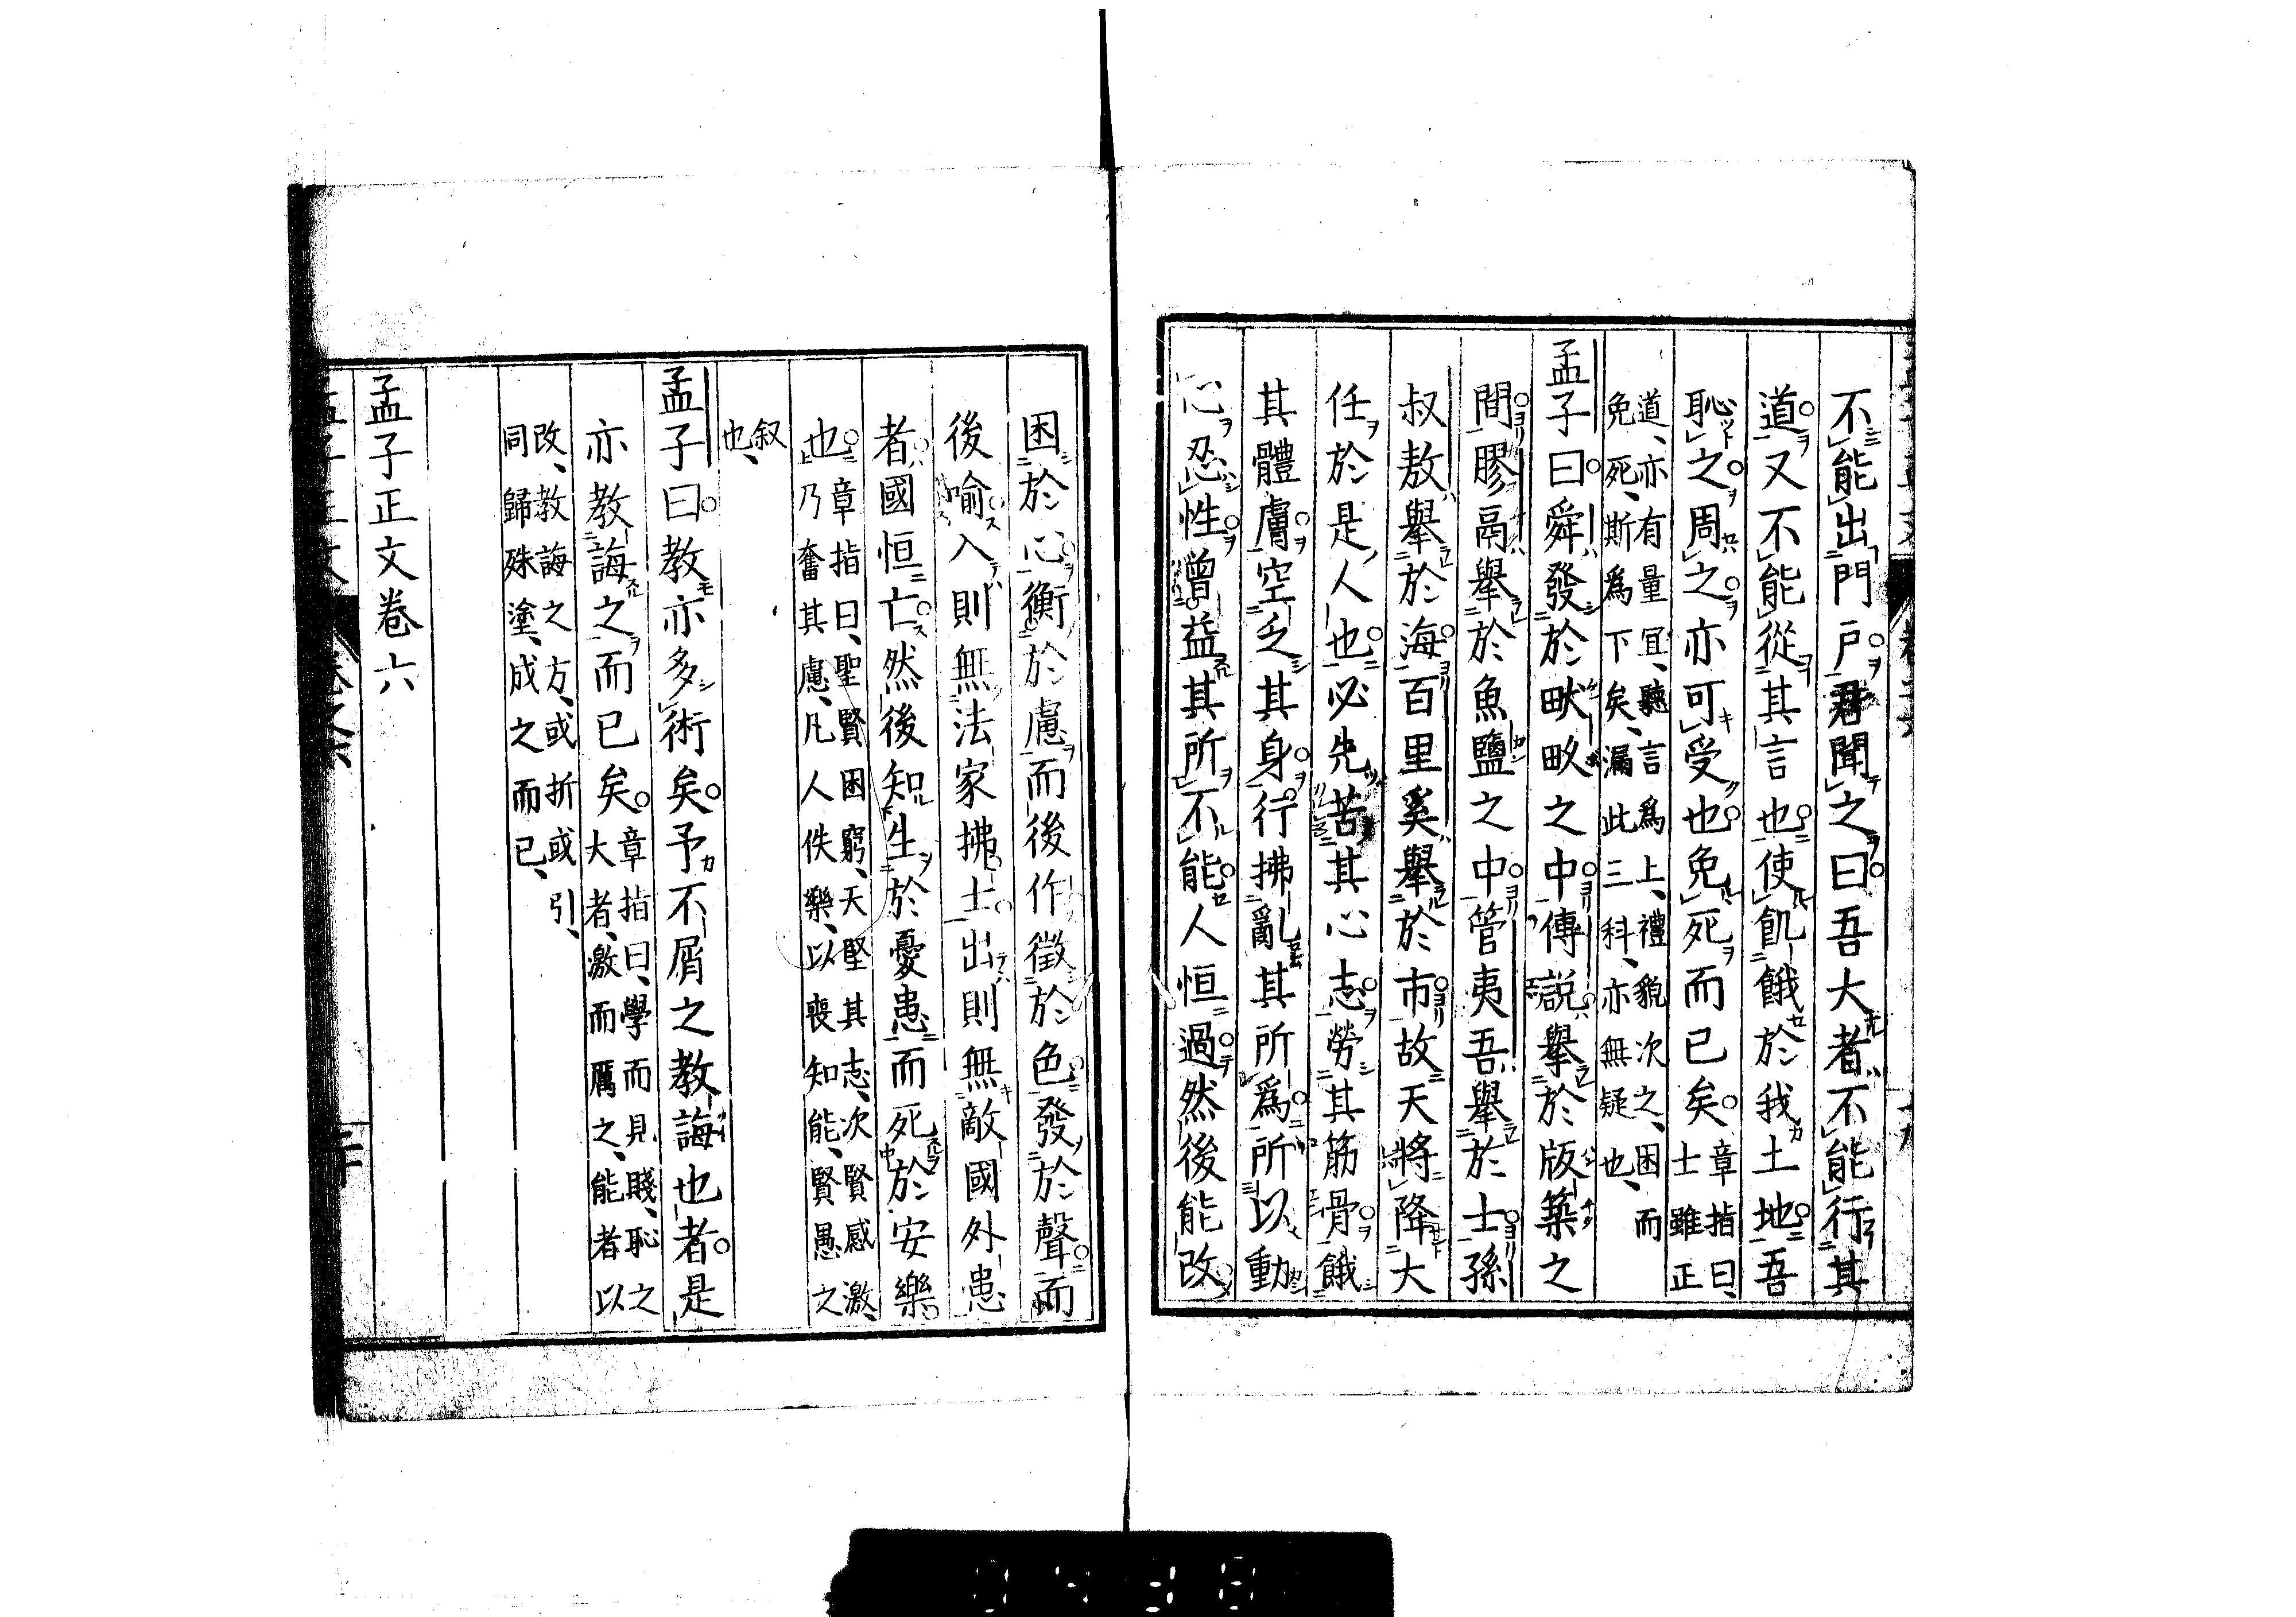 不能出門戶君聞之曰吾大者不能行其
道又不能從其言也使飢餓於我土地吾
恥之周之亦可受也免死而已矣章指曰、士雖正
道、亦有量宜、聽言為上、禮貌次之、困而
免死、斯為下矣、漏此三科、亦無疑也、
孟子曰舜發於畎畝之中傅說舉於版築之
間膠鬲舉於魚鹽之中管夷吾舉於士孫
叔敖舉於海百里奚舉於市故天將降大
任於是人也必先苦其心志勞其筋骨餓
其體膚空乏其身行拂亂其所為所以動
心忍性曾益其所不能人恒過然後能改
困於心衡於慮而後作徵於色發於聲而
後喻入則無法家拂士出則無敵國外患
者國恒亡然後知生於憂患而死於安樂
也章指曰、聖賢困窮、天堅其志、次賢感激、
乃奮其慮、凡人佚樂、以喪知能、賢愚之
叙也、
孟子曰教亦多術矣予不屑之教誨也者是
亦教誨之而已矣章指曰、學而見賤、恥之
大者、激而厲之、能者以
改、教誨之方、或折或引、
同歸殊塗、成之而已、
孟子正文卷六